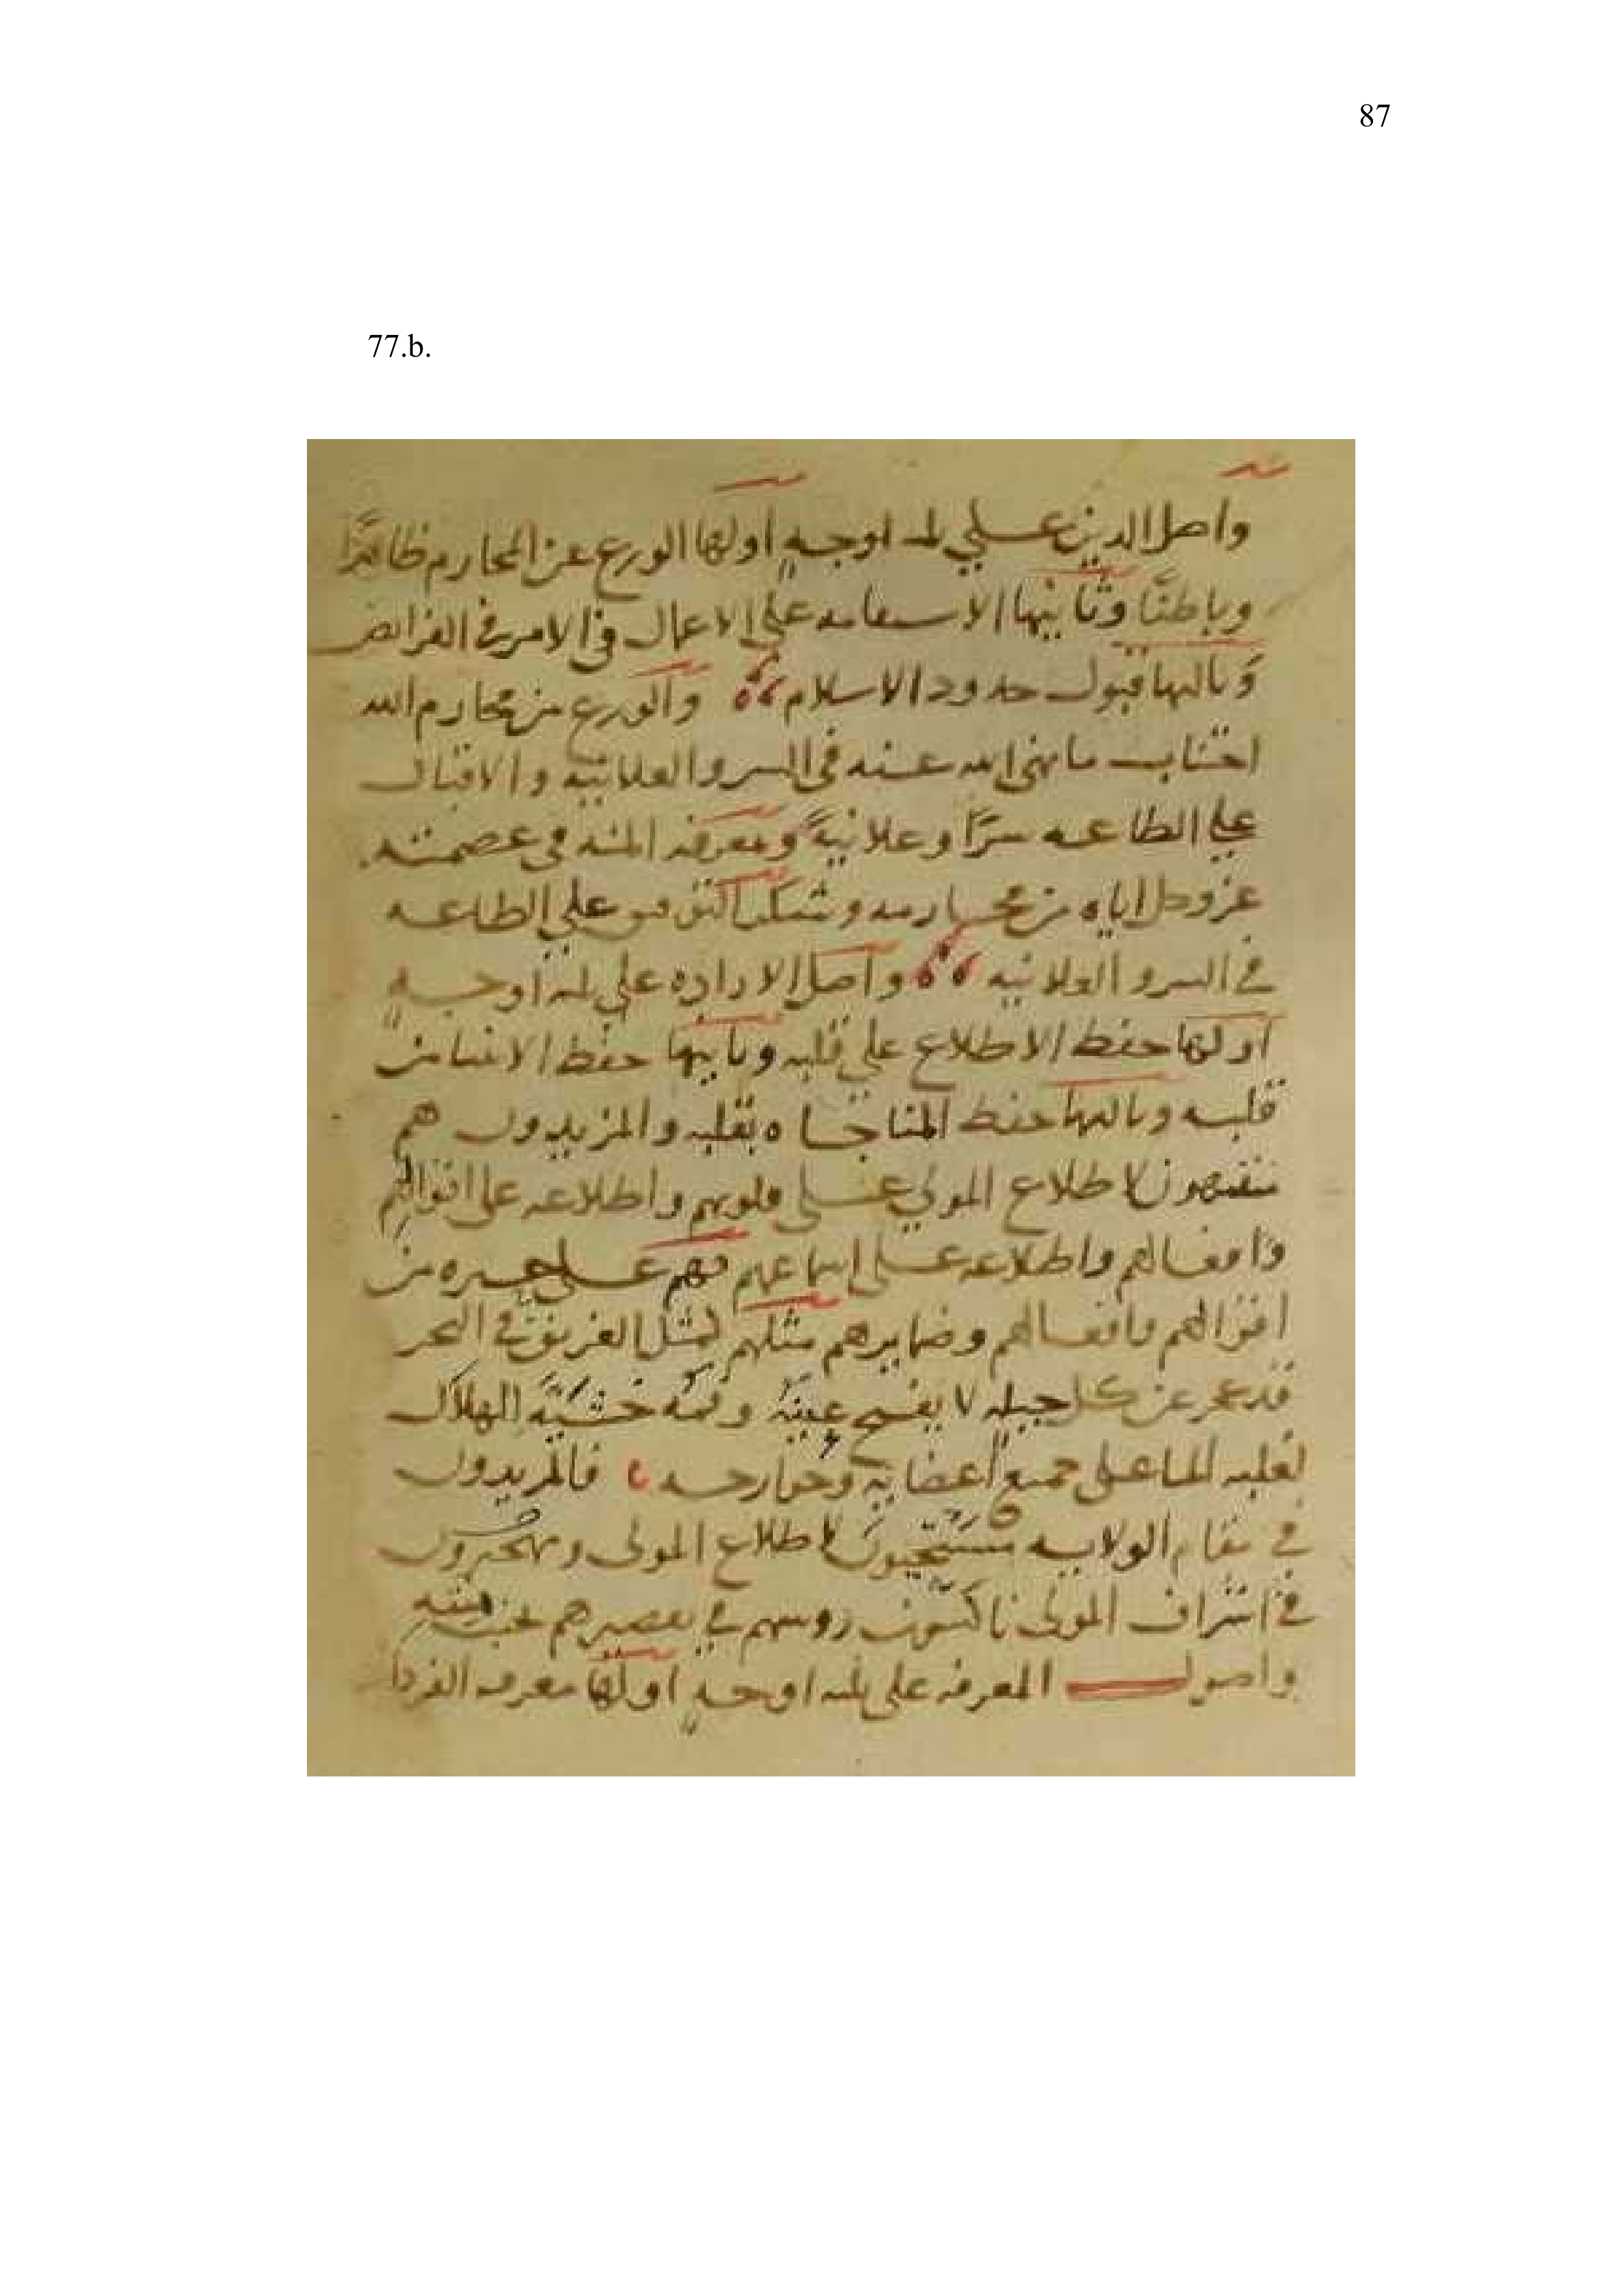 87
77.b.
واصل الدين علي ثلثه اوجهٍ اولها الورع عن المحارم ظاهرًا
وباطنًا وثانيها الاستقامه على الاعمال في الامر في الفرائض
وثالثها قبول حدود الاسلام والورع من محارم الله
اجتناب ما نهى الله عنه في السر والعلانيه والاقبال
على الطاعه سرًا وعلانيةً ومعرفه المنه في عصمته
عز وجل اياه من محارمه وشكر التوفيق على الطاعه
في السر والعلانيه واصل الاراده على ثلثه اوجهٍ
اولها حفظ الاطلاع على قلبه وثانيها حفظ الاشيا من
قلبه وثالثها حفظ المناجاه بقلبه والمريدون هم
لاطلاع المولي على قلوبهم واطلاعه على اقوالهم
وافعالهم واطلاعه على اسماعهم فهم على من
اقوالهم وافعالهم وضمايرهم مثلهم كمثل الغريق في البحر
قد عجز عن كل حيله لا يفتح عينهُ وفمه خشيةَ الهلاك
لغلبه الما على جميع اعضايه وجوارحه فالمريدون
في مقام الولايه مستحيون لاطلاع المولى
في اشراف المولى ناكسون روسهم في تقصيرهم
واصول المعرفه على ثلثه اوجهٍ اولها معرفه